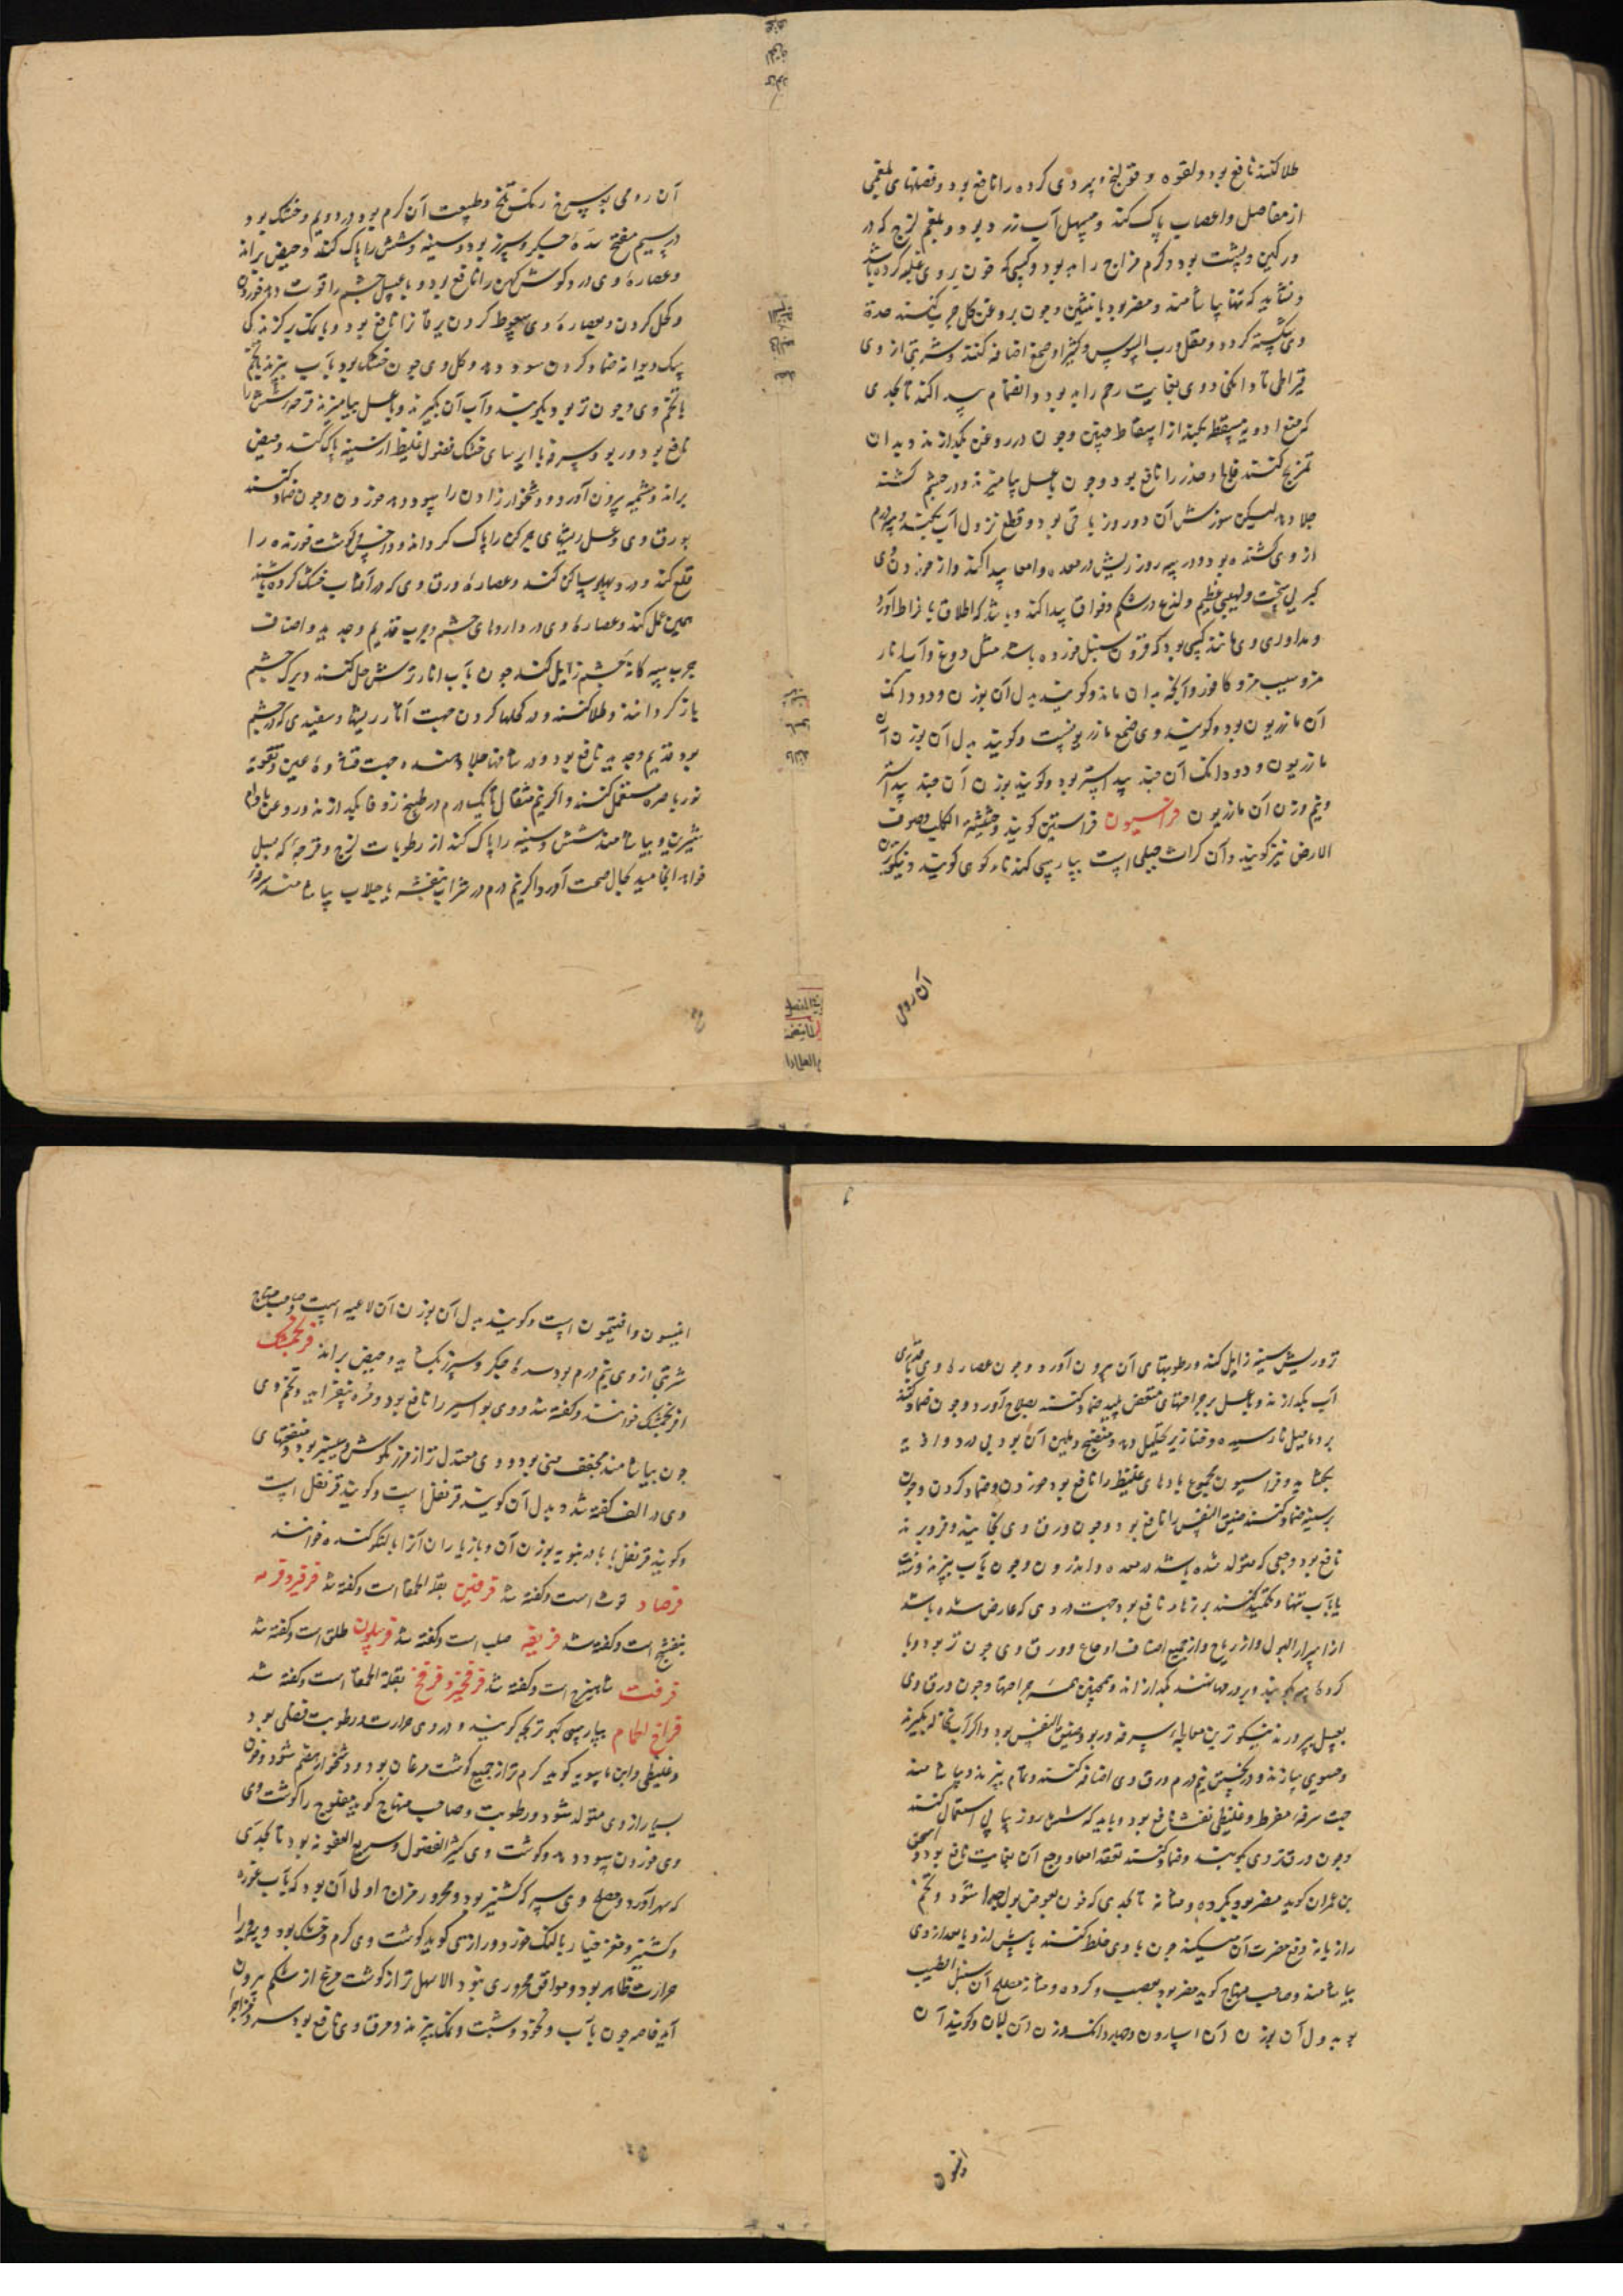 طلا کنند نافع بود و لقوه و قولنج و سردی کرده را نافع بود و فضلهای بلغمی
از مفاصل و اعصاب پاک کند و مسهل آب زرد بود و بلغم لزج که در
ورکین و پشت بود و گرم مزاج را بد بود و کسی که خون بر وی غلبه کرده باشد
و نشاید که تنها بیاشامند و مضر بود بانثیین و چون بروغن گل چرب کنند حدة
وی شکسته گردد و مقل و رب السوس و کثیرا و صمغ اضافه کنند و شربتی از وی
قیراطی تا دانکی و وی بغایت رحم را بد بود و انضمام پیدا کند تا بحدی
که منع ادویه مسقطه بکند از اسقاط جنین و چون در روغن بگدازند و بدان
تمریخ کنند فالج و خدر را نافع بود و چون با عسل بیامیزند و در چشم کشند
جلا دهد لیکن سوزش آن دو روز باقی بود و قطع نزول آب بکند و سه درم
از وی کشنده بود و در سه روز ریش در معده و امعا پیدا کند و از خوردن وی
کربی سخت و لهیبی عظیم و لذع در شکم و فواق پیدا کند و باشد که اطلاق بافراط آورد
و مداوای وی مانند کسی بود که قرون سنبل خورده باشد مثل دوغ و آب انار
مز و سیب مز و کافور و آنچه بدان ماند و گویند بدل آن بوزن و دو دانک
آن مازریون بود و گویند وی صمغ مازریونست و گویند بدل آن بوزن آن
مازریون و دو دانک آن جند بیدستر بود و گویند بوزن آن جند بیدستر
و نیم وزن آن مازریون فراسیون فراستین گویند و حشیشة الکلب و صوف
الارض نیز گویند و آن کراث جبلی است بپارسی گندناء کوهی گویند و نیکوترین
آن رومی
آن رومی بود سرخ رنگ تلخ و طبیعت آن گرم بود در دویم و خشک بود
در سیم مفتح سدهٔ جگر و سپرز بود و سینه و شش را پاک کند و حیض براند
و عصارهٔ وی درد گوش کهن را نافع بود و با عسل چشم را قوت دهد خوردن
و کحل کردن و بعصارهٔ وی سعوط کردن یرقان را نافع بود و با نمک بر گزندگی
سگ دیوانه ضماد کردن سود دهد و کل وی چون خشک بود بآب بپزند با تخم
با تخم وی و چون تر بود بکوبند و آب آن بگیرند و با عسل بیامیزند قرحه شش را
نافع بود و ربو و سرفه با ایرسای خشک فضول غلیظ از سینه پاک کند و حیض
براند و مشیمه بیرون آورد و دشخوار زادن را سود دهد خوردن و چون ضماد کنند
بورق وی و عسل ریشهای چرکن را پاک گرداند و داخس و گوشت خورده را
قلع کند و درد پهلو ساکن کند و عصارهٔ ورق وی که در آفتاب خشک کرده باشند
همین عمل کند و عصارهٔ وی در داروهای چشم و جرب قدیم و جدید و اصناف
جرب سه کانه چشم زایل کند چون بآب انار ترش حل کنند و برک چشم
باز گردانند و طلا کنند و در کحلها کردن جهت آثار ریشها و سفیدی که در چشم
بود قدیم و جدید نافع بود و در شافها جلا دهنده جهت غشاوهٔ عین و تقویة
نور باصره مستعمل کنند و اگر نیم مثقال تا یک درم در طبیخ زوفا بگدازند و روغن بادام
شیرین و بیاشامند شش و سینه را پاک کند از رطوبات لزج و قرحهٔ که بسل
خواهد انجامید بحال صحت آورد و اگر نیم درم در شراب بنفشه یا جلاب بیاشامند سه روز
تر و ریش سینه زایل کند و رطوبتهای آن بیرون آورد و چون عصارهٔ وی قدری
آب بگدازند و با عسل بر جراحتهای متعفن پلید ضماد کنند بصلاح آورد و چون ضماد کنند
بر دمامیل نارسیده و خنازیر تحلیل دهد و منضج و ملین آن بود بی درد و اذیه
بگشاید و فراسیون بجمیع بادهای غلیظ را نافع بود خوردن و ضماد کردن و چون
بر سینه ضماد کنند ضیق النفس را نافع بود و چون ورق وی بخایند و فرو برند
نافع بود وجعی که متولد شده باشد در معده و اندرون و چون بآب بپزند و زیت
یا بآب تنها و تکمید کنند بر زهار نافع بود جهت دردی که عارض شده باشد
از اسرار البول و از ریاح و از جمیع اصناف اوجاع و ورق وی چون تر بود و با
کردهٔ پیه بکوبند و بر ورمها نهند بگدازاند و همچنین همه جراحتها و چون ورق وی
بعسل بپرورند نیکوترین معالجهٔ سرفه و ربو و ضیق النفس بود و اگر آب نخاله بگیرند
و حسوی سازند و در پختن نیم درم ورق وی اضافه کنند و تمام بپزند و بیاشامند
جهت سرفه مفرط و غلیظی نفث نافع بود و باید که شش روز پیاپی استعمال کنند
و چون ورق تر وی بکوبند و ضماد کنند تعقد امعا و وجع آن بغایت نافع بود و اسحق
بن عمران گوید مضر بود بکرده و مثانه تا بحدی که خون بعوض بول جدا شود و تخم
رازیانه دفع مضرت آن میکند چون با وی خلط کنند یا پیش از وی یا بعد از وی
بیاشامند و صاحب منهاج گوید مضر بود بعصب و کرده و مثانه مصلح آن سنبل الطیب
بود و بدل آن بوزن آن اسارون و چهار دانک وزن آن لبان و گویند آن
افتیمون
انیسون و افتیمون است و گویند بدل آن بوزن آن لاعیه است و صاحب منهاج
شربتی از وی نیم درم بود سدهٔ جگر و سپرز بگشاید و حیض براند فرنجمشک
افرنجمشک خوانند و گفته شد و وی بواسیر را نافع بود و قره بیفزاید و تخم وی
چون بیاشامند مجفف منی بود و وی معتدل تر از مرزنگوش و سیسنبر بود و منفعتهای
وی در الف گفته شد و بدل آن گویند قرنفل است و گویند قرنفل است
و گویند قرنفل با بادرنبویه بوزن آن و بازیاران آنرا بالنکو گنده خوانند
فرصاد توث است و گفته شد فرفین بقلة الحمقا است و گفته شد فرفیر و فرمه
بنفشج است و گفته شد فریقه حلبه است و گفته شد فرسلون طلق است و گفته شد
فرفت شاهترج است و گفته شد فرفخیز و فرفخ بقلة الحمقا است و گفته شد
فراخ الحمام بپارسی کبوتر بچه گویند و در وی حرارت و رطوبت فضلی بود
و غلیظی و ابن ماسویه گوید گرم تر از جمیع گوشت مرغان بود و دشخوار هضم شود و خون
بسیار از وی متولد شود و رطوبت و صاحب منهاج گوید مفلوج را گوشت وی
وی خوردن سود دهد و گوشت وی کثیر الفضول و سریع العفونه بود تا بحدی
که سهر آورد و مصلح وی سرکه و کشنیز بود و محرور مزاج اولی آن بود که بآب غوره
و کشنیز و مغز خیار بالنک خورد و رازی گوید گوشت وی گرم و خشک بود و پرورا
حرارت ظاهر بود و موافق محروری نبود الا سهل تر از گوشت مرغ از شکم بیرون
آید خاصه چون بآب و نخود و شبت و نمک بپزند و مرق وی نافع بود سرد مزاجرا